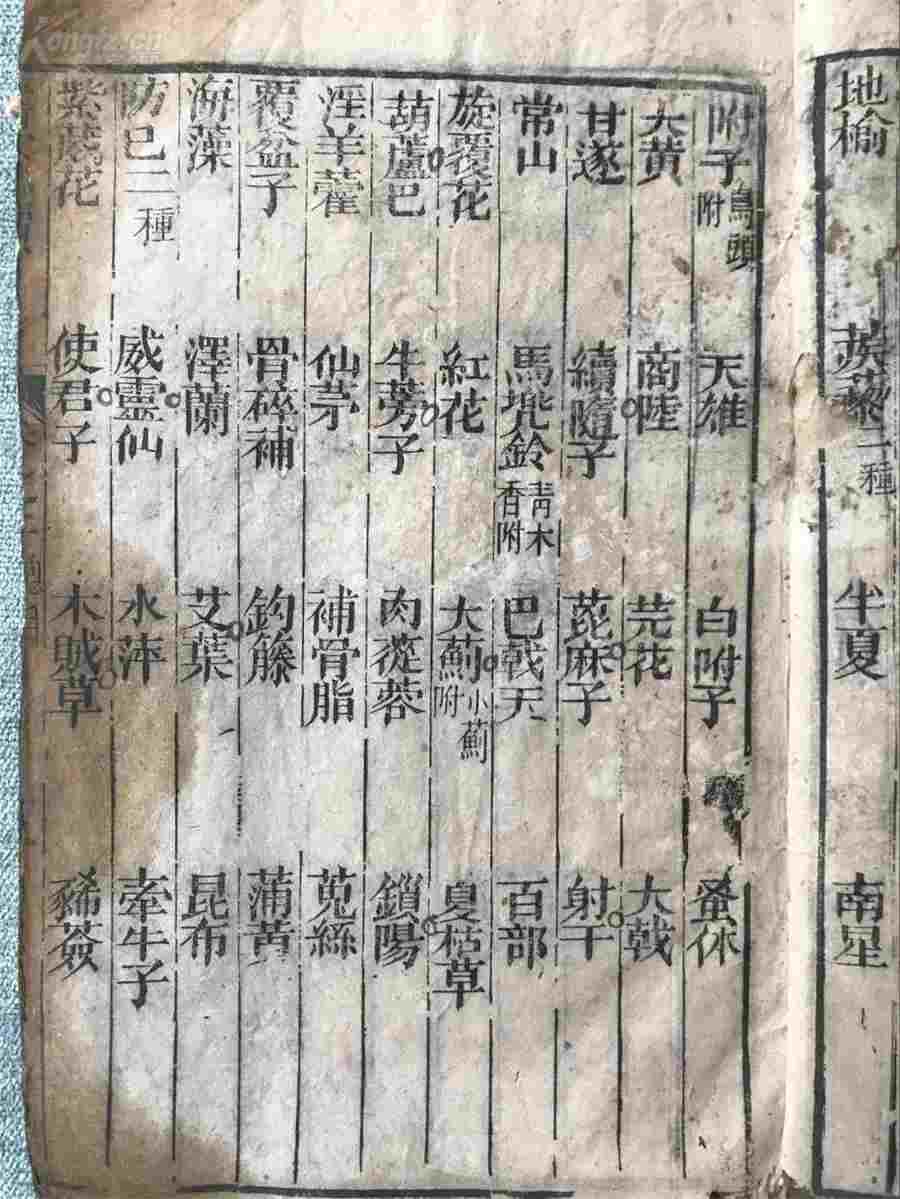 地榆 蒺藜二種 半夏 南星
附子烏頭附 天雄 白附子 蚤休
大黄 商陸 芫花 大戟
甘遂 續隨子 蓖麻子 射干
常山 馬兠鈴青木香附 巴戟天 百部
旋覆花 紅花 大薊小薊附 夏枯草
葫蘆巴 牛蒡子 肉蓯蓉 鎖陽
淫羊藿 仙茅 補骨脂 菟絲
覆盆子 骨碎補 鈎籐 蒲黄
海藻 澤蘭 艾葉 昆布
防已二種 威靈仙 水萍 牽牛子
紫葳花 使君子 木賊草 豨薟
Kongfz.cn